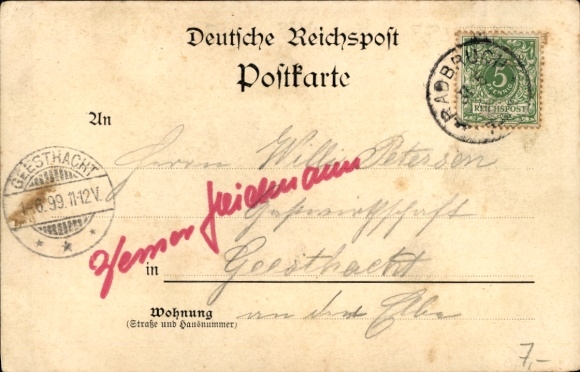 Deutsche Reichspost
Postkarte
RADBRUCH
5
PFENNIG
REICHSPOST
An
Herrn Willi Petersen
GEESTHACHT
6.99.11-12V.
Gastwirthschaft
Werner Heidemann
in Geesthacht
an der Elbe
Wohnung
(Straße und Hausnummer)
7,-